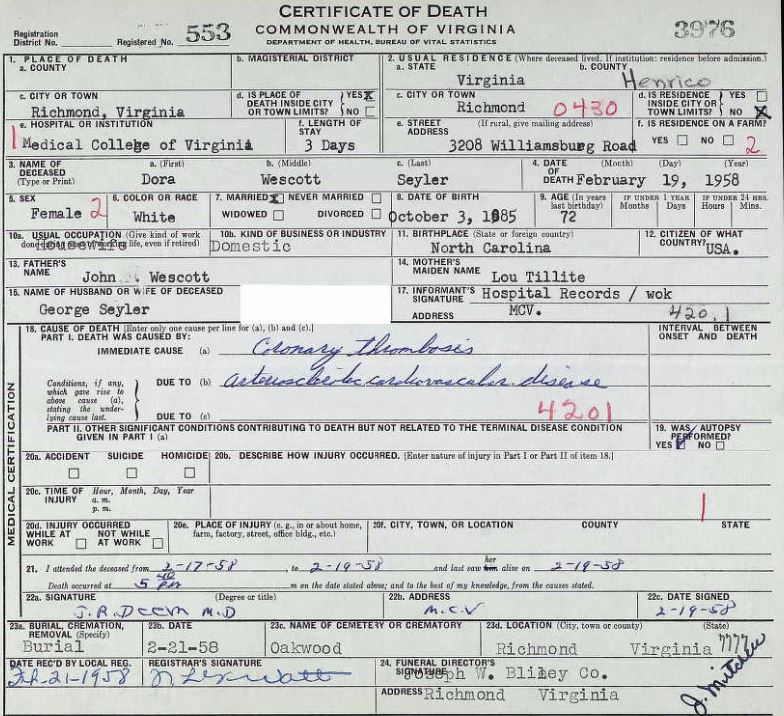 CERTIFICATE OF DEATH
COMMONWEALTH OF VIRGINIA
DEPARTMENT OF HEALTH, BUREAU OF VITAL STATISTICS
Registration District No. Registered No. 553 3976
1. PLACE OF DEATH
a. COUNTY
b. MAGISTERIAL DISTRICT
2. USUAL RESIDENCE (Where deceased lived. If institution: residence before admission.)
a. STATE Virginia
b. COUNTY Henrico
c. CITY OR TOWN Richmond, Virginia
d. IS PLACE OF DEATH INSIDE CITY OR TOWN LIMITS? YES X NO
c. CITY OR TOWN Richmond 0430
d. IS RESIDENCE INSIDE CITY OR TOWN LIMITS? YES NO X
e. HOSPITAL OR INSTITUTION
1 Medical College of Virginia
f. LENGTH OF STAY 3 Days
e. STREET ADDRESS (If rural, give mailing address) 3208 Williamsburg Road
f. IS RESIDENCE ON A FARM? YES NO 2
3. NAME OF DECEASED (Type or Print)
a. (First) b. (Middle) c. (Last)
Dora Wescott Seyler
4. DATE OF DEATH (Month) (Day) (Year)
February 19, 1958
5. SEX Female 2
6. COLOR OR RACE White
7. MARRIED X NEVER MARRIED
WIDOWED DIVORCED
8. DATE OF BIRTH October 3, 1885
9. AGE (In years last birthday) 72
IF UNDER 1 YEAR Months Days
IF UNDER 24 HRS. Hours Mins.
10a. USUAL OCCUPATION (Give kind of work done during most of working life, even if retired) Housewife
10b. KIND OF BUSINESS OR INDUSTRY Domestic
11. BIRTHPLACE (State or foreign country) North Carolina
12. CITIZEN OF WHAT COUNTRY? USA.
13. FATHER'S NAME John Wescott
14. MOTHER'S MAIDEN NAME Lou Tillite
15. NAME OF HUSBAND OR WIFE OF DECEASED
George Seyler
17. INFORMANT'S SIGNATURE Hospital Records / wok
ADDRESS MCV. 420.1
MEDICAL CERTIFICATION
18. CAUSE OF DEATH [Enter only one cause per line for (a), (b) and (c).]
PART I. DEATH WAS CAUSED BY:
INTERVAL BETWEEN ONSET AND DEATH
IMMEDIATE CAUSE (a) Coronary thrombosis
Conditions, if any, which gave rise to above cause (a), stating the underlying cause last.
DUE TO (b) arteriosclerotic cardiovascular disease
DUE TO (c) 4201
PART II. OTHER SIGNIFICANT CONDITIONS CONTRIBUTING TO DEATH BUT NOT RELATED TO THE TERMINAL DISEASE CONDITION GIVEN IN PART I (a)
19. WAS AUTOPSY PERFORMED? YES NO
20a. ACCIDENT SUICIDE HOMICIDE
20b. DESCRIBE HOW INJURY OCCURRED. [Enter nature of injury in Part I or Part II of item 18.]
20c. TIME OF INJURY Hour, Month, Day, Year
a. m.
p. m.
1
20d. INJURY OCCURRED
WHILE AT WORK NOT WHILE AT WORK
20e. PLACE OF INJURY (e. g., in or about home, farm, factory, street, office bldg., etc.)
20f. CITY, TOWN, OR LOCATION COUNTY STATE
21. I attended the deceased from 2-17-58, to 2-19-58 and last saw her him alive on 2-19-58
Death occurred at 5 40 PM m on the date stated above; and to the best of my knowledge, from the causes stated.
22a. SIGNATURE (Degree or title) J.R. Deem M.D
22b. ADDRESS M.C.V
22c. DATE SIGNED 2-19-58
23a. BURIAL, CREMATION, REMOVAL (Specify) Burial
23b. DATE 2-21-58
23c. NAME OF CEMETERY OR CREMATORY Oakwood
23d. LOCATION (City, town or county) (State)
Richmond Virginia
DATE REC'D BY LOCAL REG. Feb-21-1958
REGISTRAR'S SIGNATURE
24. FUNERAL DIRECTOR'S SIGNATURE Joseph W. Bliley Co.
ADDRESS Richmond Virginia
J. Mitchell